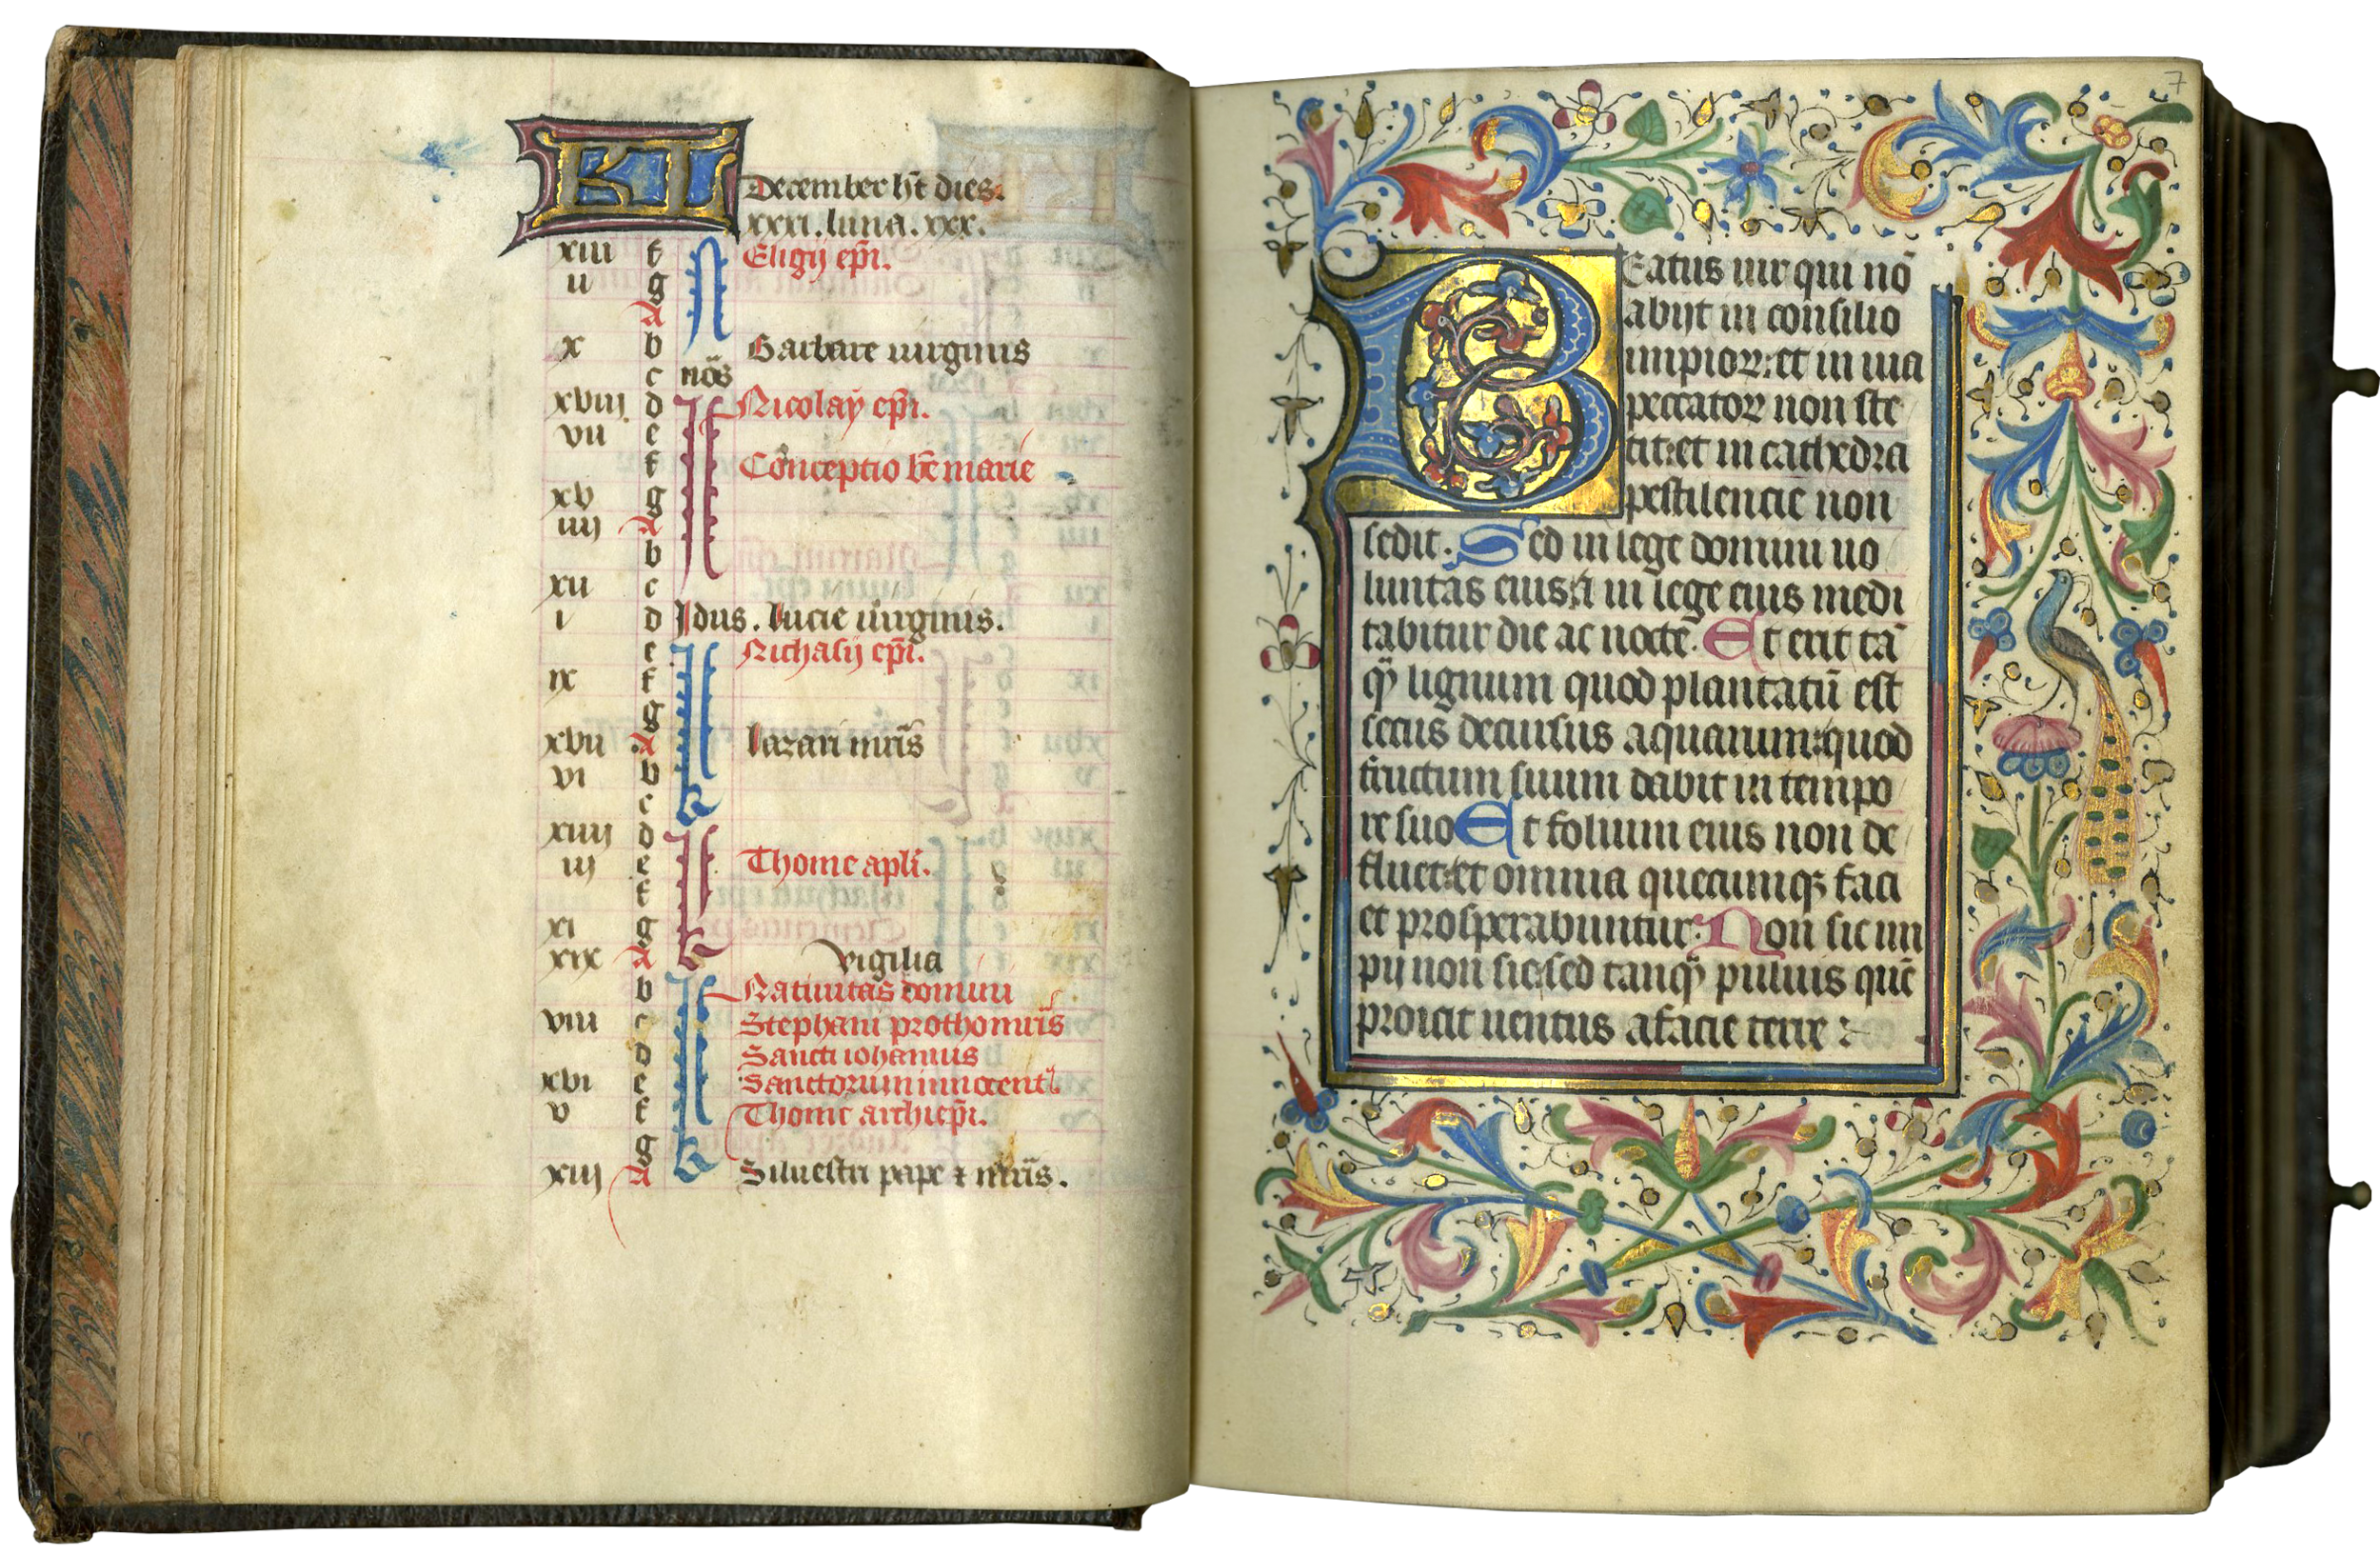 KL December ht dies.
xxxi. luna. xxx.
xiii f Eligij epi.
ii g
A
x b Barbare uirginis
c nos
xviij d Nicolay epi.
vii e
f Conceptio be marie
xv g
iiij A
b
xii c
i d Idus. lucie uirginis.
e Nichasij epi.
ix f
g
xvii A lazari mris
vi b
c
xiiij d
iij e Thome apli.
f
xi g
xix A vigilia
b Natiuitas domini
viii c Stephani prothomris
d Sancti iohannis
xvi e Sanctorum innocent
v f Thome archiepi.
g
xiij A Siluestri pape ⁊ mris.
7
BEatus uir qui nō
abijt in consilio
impioꝝ: et in uia
peccatoꝝ non ste
tit: et in cathedra
pestilencie non
sedit. Sed in lege domini uo
luntas eius: ⁊ in lege eius medi
tabitur die ac nocte. Et erit tā
qͣ lignum quod plantatū est
secus decursus aquarum: quod
fructum suum dabit in tempo
re suo Et folium eius non de
fluet: et omnia quecumqꝫ faci
et prosperabuntur. Non sic im
pij non sic: sed tanqͣ puluis quē
proicit uentus a facie terre